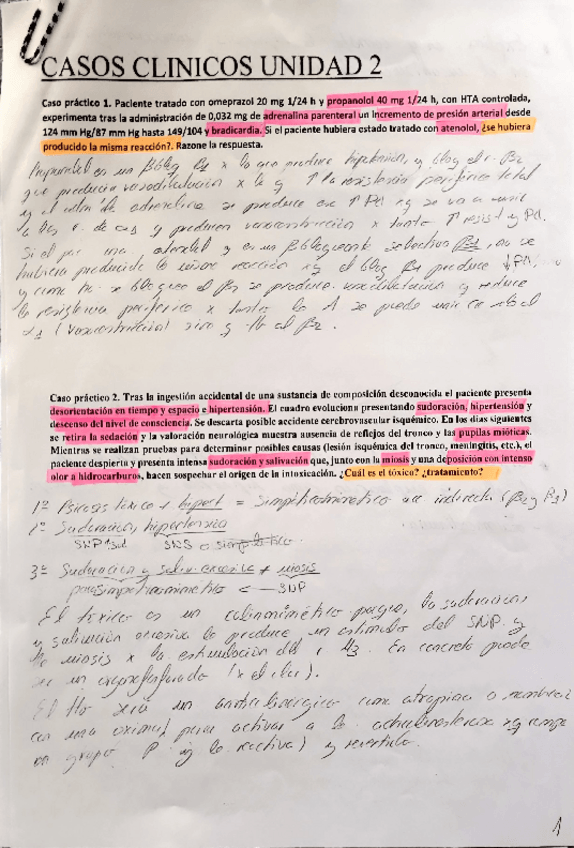 CASOS CLINICOS UNIDAD 2
Caso práctico 1. Paciente tratado con omeprazol 20 mg 1/24 h y propanolol 40 mg 1/24 h, con HTA controlada,
experimenta tras la administración de 0,032 mg de adrenalina parenteral un incremento de presión arterial desde
124 mm Hg/87 mm Hg hasta 149/104 y bradicardia. Si el paciente hubiera estado tratado con atenolol, ¿se hubiera
producido la misma reacción?. Razone la respuesta.
es un βbloq β1 x lo que produce hipotensión, y bloq el r. β2
que producía vasodilatación x lo q ↑ la resistencia periférica total
y al adm. adrenalina se produce ese ↑ PA xq se va a unir
a los r. de α1 y producen vasoconstricción x tanto ↑ resist y PA.
Si el una atenolol y es un βbloqueante selectivo β1, no se
hubiera producido la misma reacción xq el bloq β1 produce ↓PA.
y como no se bloquea el β2 se produce vasodilatación y reduce
la resistencia periférica x tanto la A se puede unir no solo al
α1 (vasoconstricción) sino q tb al β2.
Caso práctico 2. Tras la ingestión accidental de una sustancia de composición desconocida el paciente presenta
desorientación en tiempo y espacio e hipertensión. El cuadro evoluciona presentando sudoración, hipertensión y
descenso del nivel de consciencia. Se descarta posible accidente cerebrovascular isquémico. En los días siguientes
se retira la sedación y la valoración neurológica muestra ausencia de reflejos del tronco y las pupilas mióticas.
Mientras se realizan pruebas para determinar posibles causas (lesión isquémica del tronco, meningitis, etc.), el
paciente despierta y presenta intensa sudoración y salivación que, junto con la miosis y una deposición con intenso
olor a hidrocarburos, hacen sospechar el origen de la intoxicación. ¿Cuál es el tóxico? ¿tratamiento?
1º Psicosis tóxica + hipert = Simpaticomimético acc indirecta (β2 y β3)
2º Sudoración, hipertensión
SNP SNS o simpático
3º Sudoración y saliv. excesiva + miosis
parasimpaticomimético SNP
El tóxico es un colinomimético porque, la sudoración,
y salivación excesiva lo produce un estímulo del SNP y
la miosis x la estimulación del r M3. En concreto puede
ser un organofosforado (x el olor).
El tto sería un anticolinérgico como atropina o
con una oxima (para activar a la acetilcolinesterasa xq rompe
un grupo P y la reactiva) y revertirlo.
1